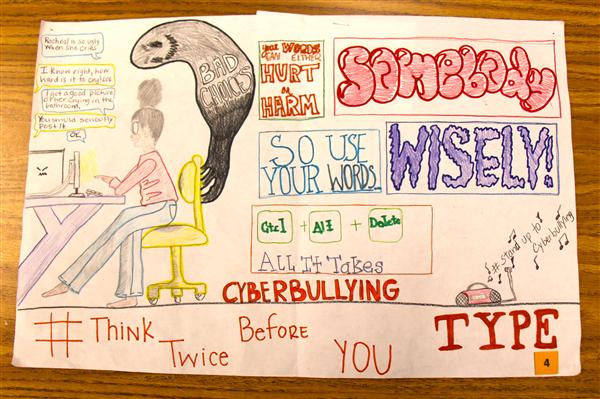 Racheal is so ugly
when she cries
I know right, how
hard is it to
I got a good picture
of her crying in the
bathroom.
You should seriously
Post It
OK
BAD
CHOICES
Your WORDS
CAN EITHER
HURT
or
HARM
SOMEBODY
SO USE
YOUR WORDS...
WISELY!
Ctrl + Alt + Delete
ALL It TAKES
# stand up to
Cyberbullying
CYBERBULLYING
# THINK
Twice
Before
YOU
TYPE
4